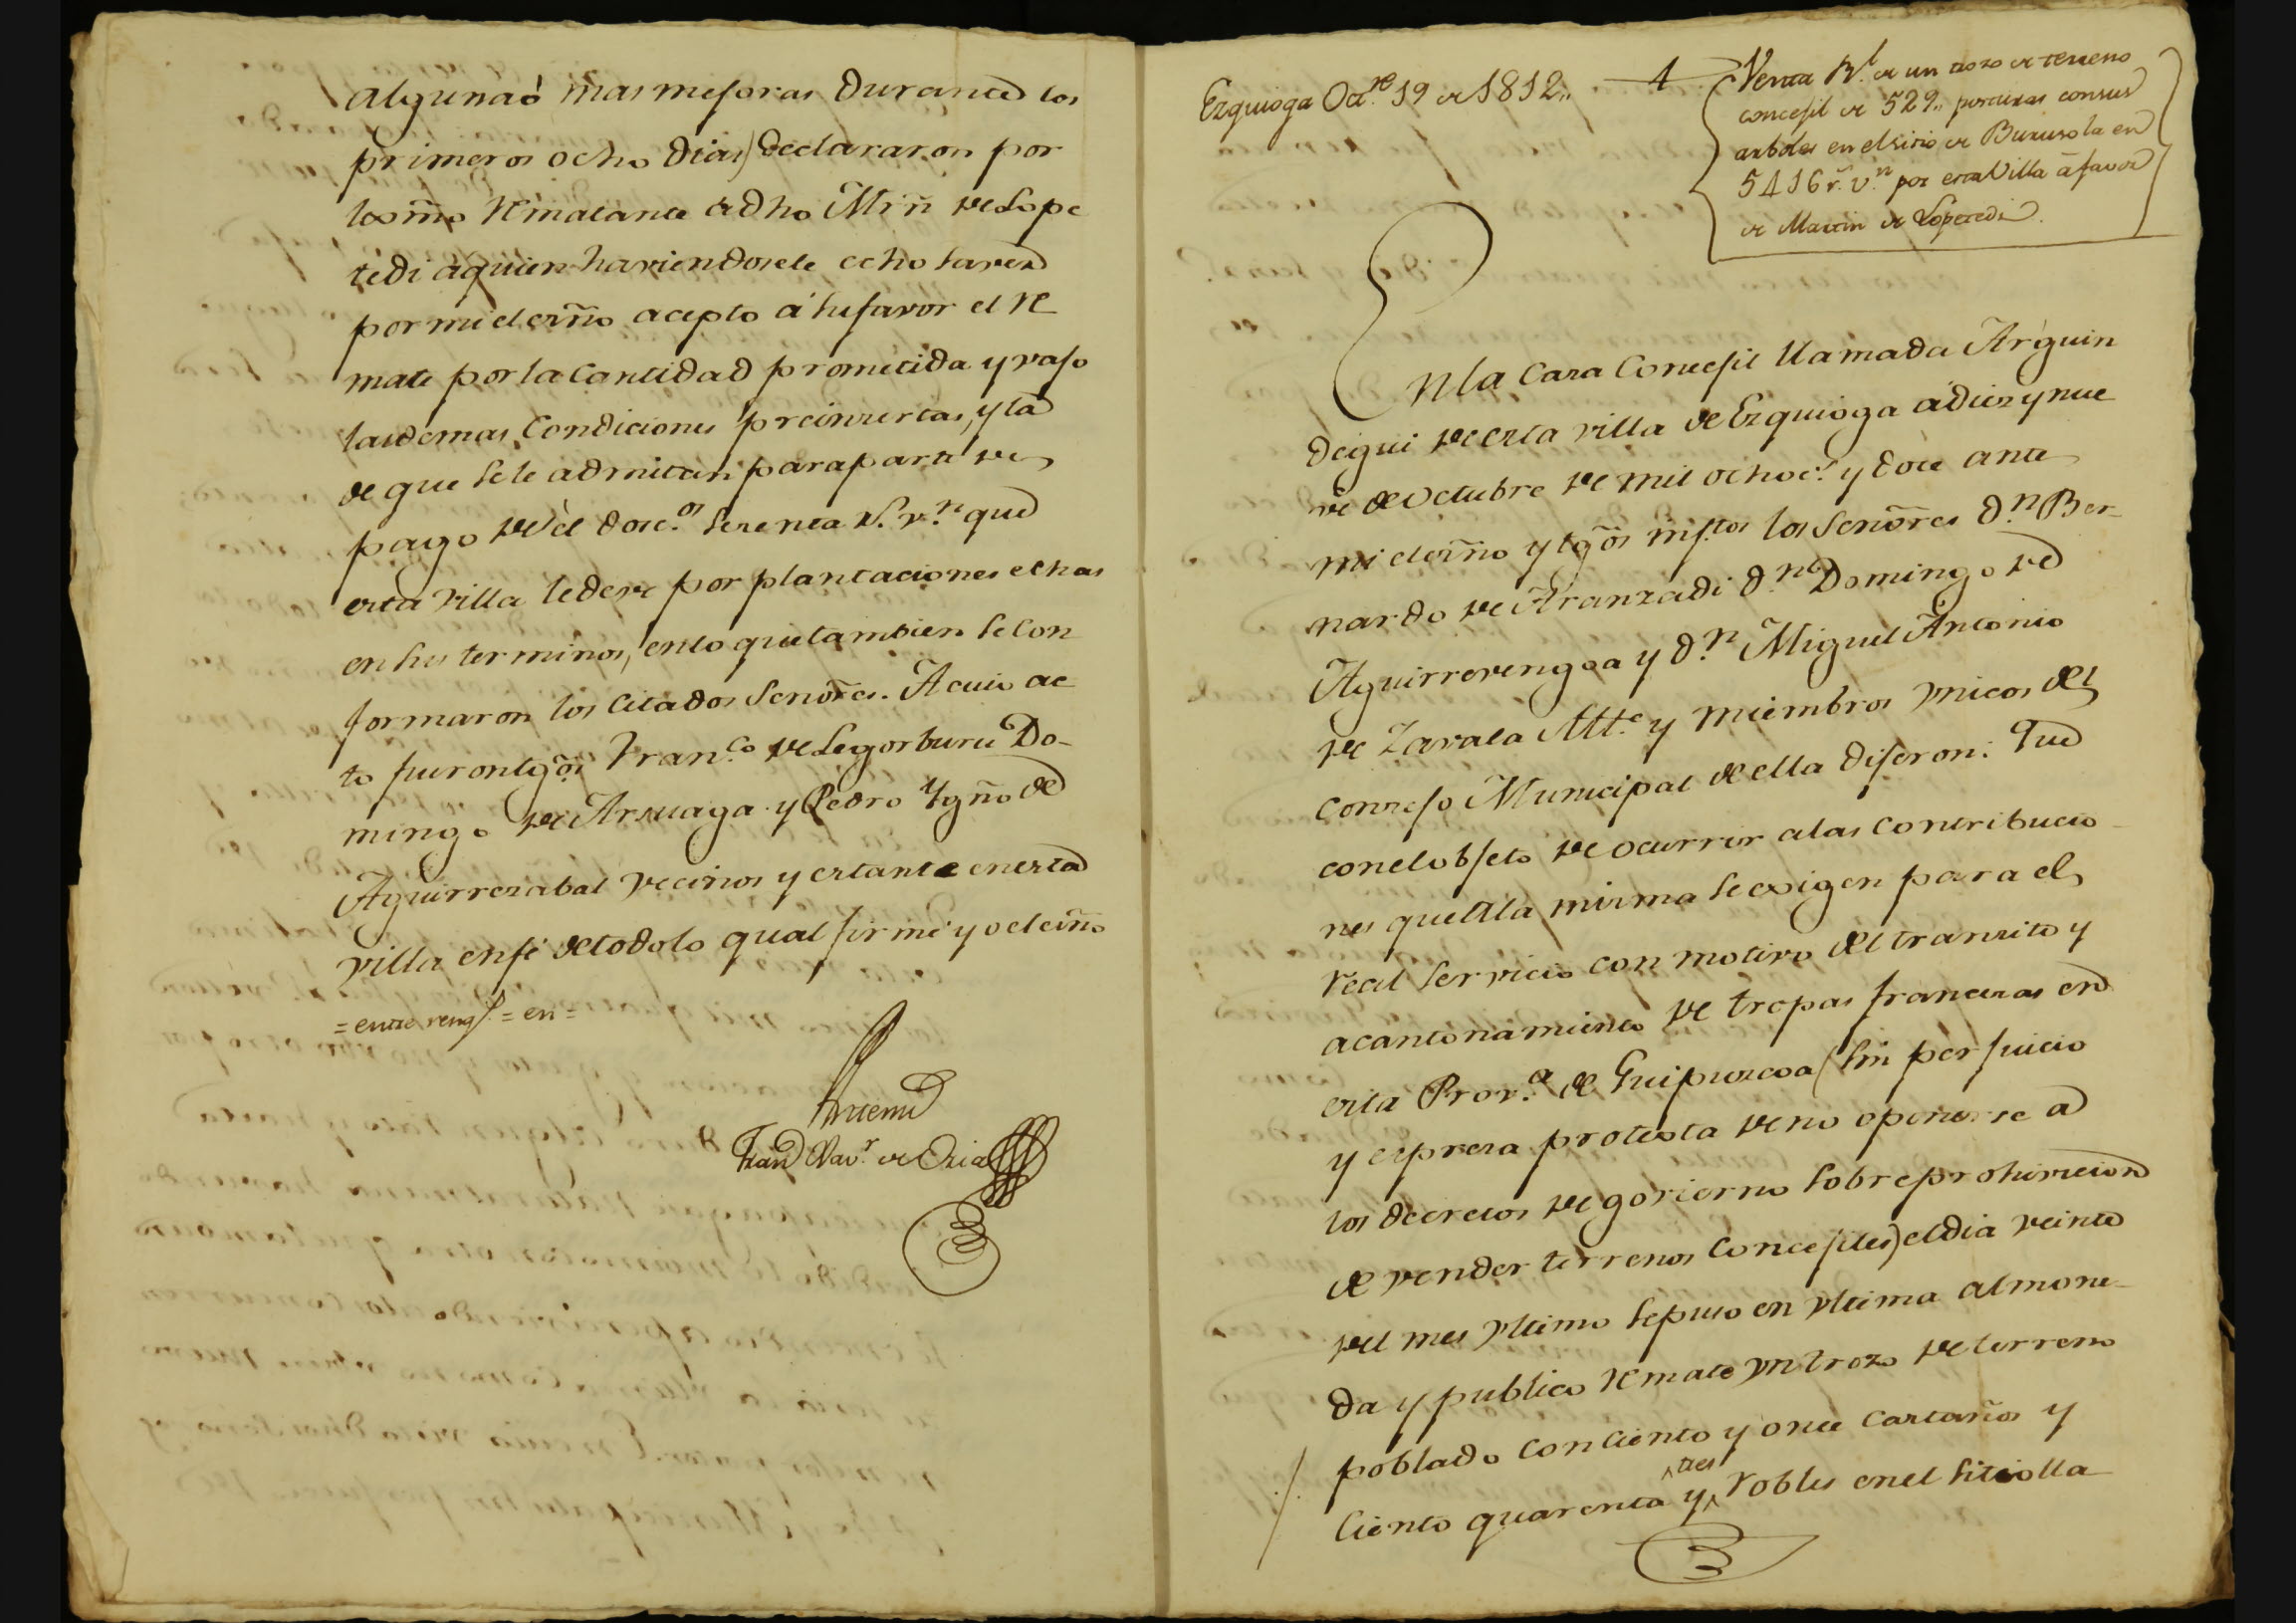 alguna ó mas mejoras durante los
primeros ocho dias) declararon por
como Rematante a dho Mrñ de Lope
tedi a quien haviendosele echo saver
por mi el es̃no acepto á su favor el Re
mate por la cantidad prometida y vajo
las demas condiciones preinsertas, y la
de que se le admitan para parte de
pago de él dosc.os sesenta r.s v.n que
esta villa le deve por plantaciones echas
en sus terminos, en lo que tambien se con
formaron los citados Señores. A cuio ac
to fueron tgõs Fran.co de Legorburu Do-
mingo de Arsuaga y Pedro Ygñ̃o de
Aguirrezabal vecinos y estante en esta
villa en fé de todo lo qual firmé yo el es̃no
=entre rengs.=en=
Antemi
Fran Xav.r de Oria
Ezquioga Oct.re 19 de 1812,,
1
Venta R.l de un trozo de terreno
concejil de 529,, posturas con sus
arboles en el sitio de Buzusola en
5416 r.s v.n por esta Villa á favor
de Martin de Lopetedi.
En la Casa Concejil llamada Arguin
degui de esta villa de Ezquioga á diez y nue
ve de Octubre de mil ochoc.s y doce ante
mi el es̃no y tgõs infr̃tos los Señores d.n Ber-
nardo de Aranzadi d.n Domingo de
Aguirrevengoa y d.n Miguel Antonio
de Zavala Alt.e y miembros unicos del
Consejo Municipal de ella dijeron: Que
con el objeto de ocurrir a las contribucio
nes que á la misma se exigen para el
real servicio con motivo del transito y
acantonamiento de tropas francesas en
esta Prov.a de Guipuzcoa (sin perjuicio
y expresa protesta de no oponerse a
los decretos de govierno sobre prohivicion
de vender terrenos concejiles) el dia veinte
del mes ultimo se puso en ultima almone-
da y publico Remate un trozo de terreno
poblado con ciento y once castaños y
ciento quarenta y tres robles en el sitio lla